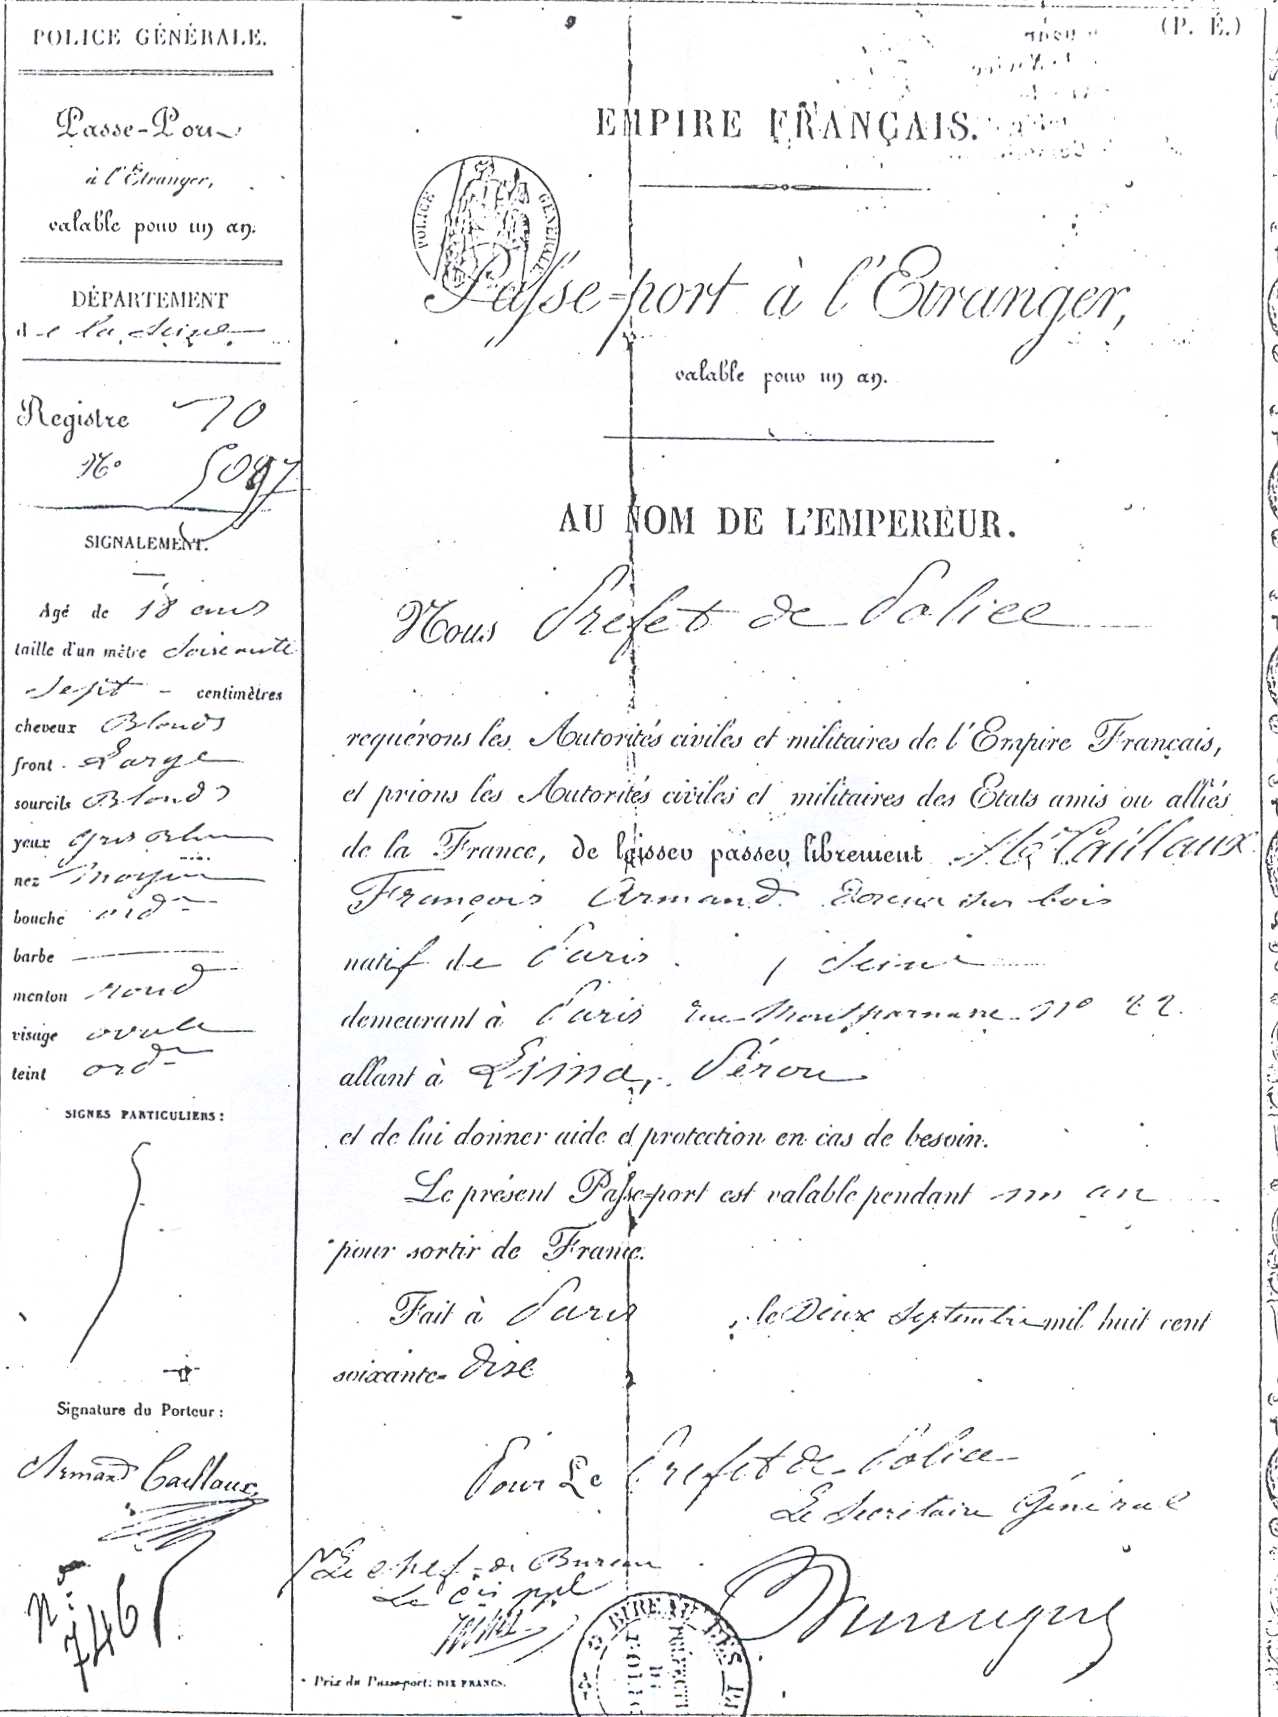 POLICE GÉNÉRALE.
Passe-Port
à l'Étranger,
valable pour un an.
DÉPARTEMENT
de la Seine
Registre 70
N° 5097
SIGNALEMENT.
Agé de 18 ans
taille d'un mètre soixante
sept centimètres
cheveux Blonds
front Large
sourcils Blonds
yeux gris bleu
nez moyen
bouche ord.re
barbe
menton rond
visage ovale
teint ord.re
SIGNES PARTICULIERS :
Signature du Porteur :
Armand Caillaux
N° 746
(P. É.)
EMPIRE FRANÇAIS.
POLICE GÉNÉRALE
Passe-port à l'Etranger,
valable pour un an.
AU NOM DE L'EMPEREUR.
Nous Prefet de Police
requérons les Autorités civiles et militaires de l'Empire Français,
et prions les Autorités civiles et militaires des Etats amis ou alliés
de la France, de laisser passer librement Caillaux
François Armand Doreur sur bois
natif de Paris, Seine
demeurant à Paris rue Montparnasse n° 22
allant à Lima, Pérou
et de lui donner aide et protection en cas de besoin.
Le présent Passe-port est valable pendant un an
pour sortir de France.
Fait à Paris, le Deux Septembre mil huit cent
soixante-Dix
Pour Le Prefet de Police
Le Secrétaire Général
Le chef de Bureau
Le Cis ppl
BUREAU DES
PREFECTURE DE POLICE
Prix du Passe-port: DIX FRANCS.